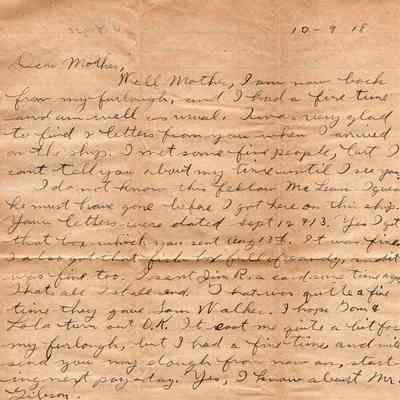 10-9 18
Dear Mother,
Well Mother, I am now back
from my furlough, and I had a fine time
and am well as usual. I was very glad
to find 2 letters from you when I arrived
on the ship. I met some fine people, but I
cant tell you about my time until I see you.
I do not know this fellow McLean I guess
he must have gone before I got here on this ship.
Your letters were dated Sept 12 & 13. Yes I got
that box which you sent Aug 13th. It was fine
I also got that box full of candy, and it
was fine too. I sent Jim R. a card some time ago
That's all I shall send. That was quite a fine
time they gave Sam Walker. I hope Tom &
Lola turn out O.K. It cost me quite a bit for
my furlough, but I had a fine time and will
send you my dough from now on, start-
ing next pay-day. Yes, I know about Mr.
Gibson.